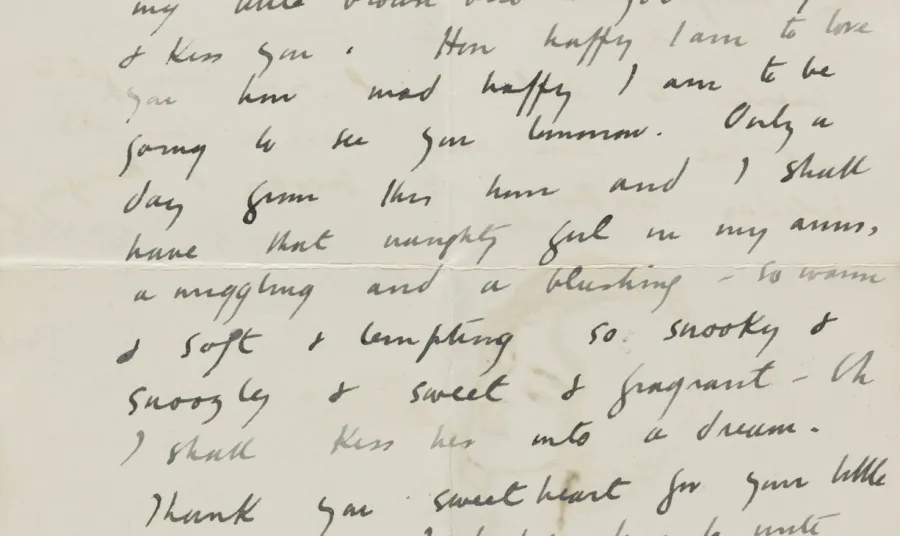 my little
& Kiss you. How happy I am to love
you how mad happy I am to be
going to see you tomorrow. Only a
day from this hour and I shall
have that naughty girl in my arms,
a wriggling and a blushing – so warm
& soft & tempting so snooky &
snoozley & sweet & fragrant – Oh
I shall Kiss her into a dream.
Thank you sweetheart for your little
to write